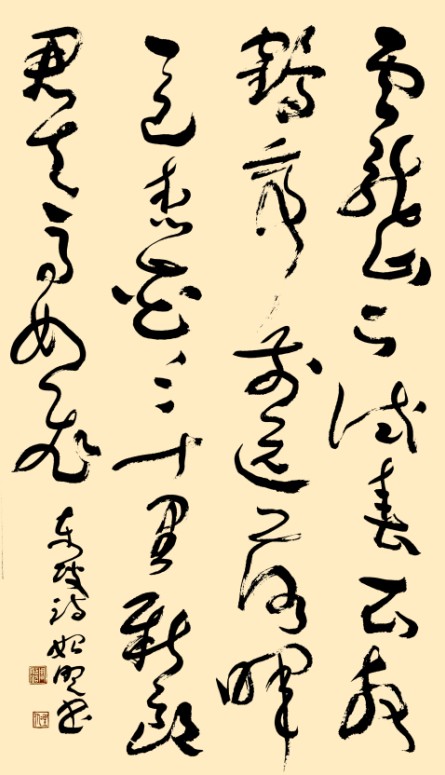 雲龍山下試春衣放
鶴亭前送落暉
一色杏花三十里新郎
君去馬如飛
东坡诗 明书